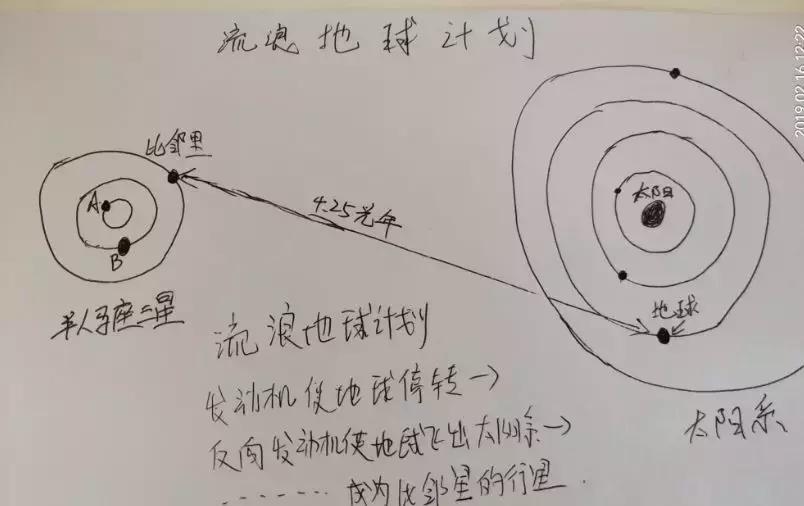 流浪地球计划
比邻星
4.25光年
A
B
半人马座三星
太阳
地球
太阳系
流浪地球计划
发动机使地球停转→
反向发动机使地球飞出太阳系→
········成为比邻星的行星.
2019.02.16 12:22